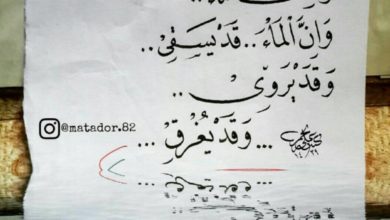 وَإِنَّ الْمَاْءَ .. قَدْ يَسْقِيْ ..
وَقَدْ يَرْوِيْ ..
... وَقَدْ يُغْرِقْ ...
@matador.82